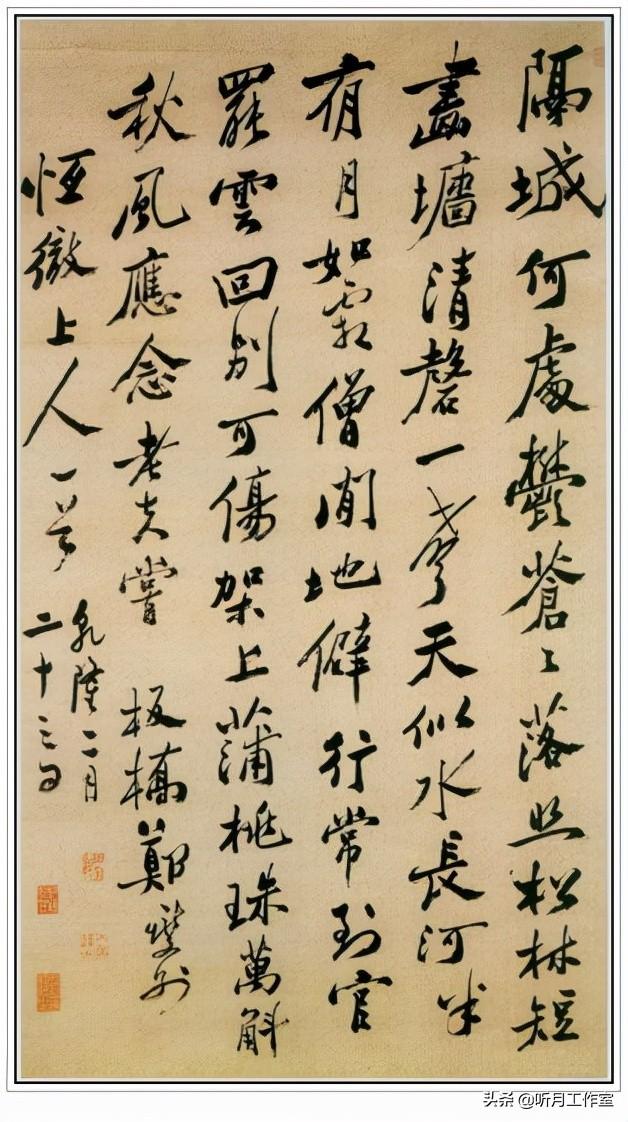 隔城何處鬱蒼〻落照松林短
畵墻清磬一聲天似水長河半
有月如霜僧閒地僻行常到官
罷雲回別可傷架上蒲桃珠萬斛
秋風應念老夫嘗 板橋鄭燮別
恆徹上人一首
乾隆二月
二十三日
头条 @听月工作室